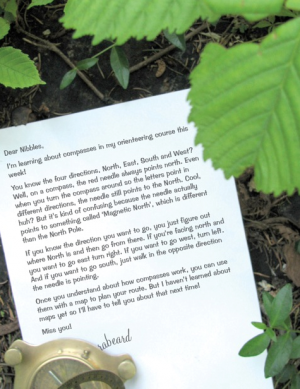 Dear Nibbles,
I'm learning about compasses in my orienteering course this
week!
You know the four directions, North, East, South and West?
Well, on a compass, the red needle always points north. Even
when you turn the compass around so the letters point in
different directions, the needle still points to the North. Cool,
huh? But it's kind of confusing because the needle actually
points to something called 'Magnetic North', which is different
than the North Pole.
If you know the direction you want to go, you just figure out
where North is and then go from there. If you're facing north and
you want to go east turn right. If you want to go west, turn left.
And if you want to go south, just walk in the opposite direction
the needle is pointing.
Once you understand about how compasses work, you can use
them with a map to plan your route. But I haven't learned about
maps yet so I'll have to tell you about that next time!
Miss you!